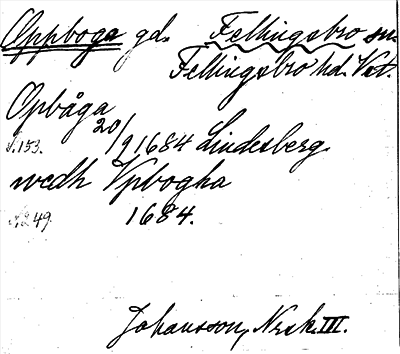 Oppboga gd. Fellingsbro sn.
Fellingsbro hd. Vst.
Opbåga
s.153. 20/9 1684 Lindesberg
wedh Vpbogha
s. 249. 1684.
Johansson, Nerk. III.